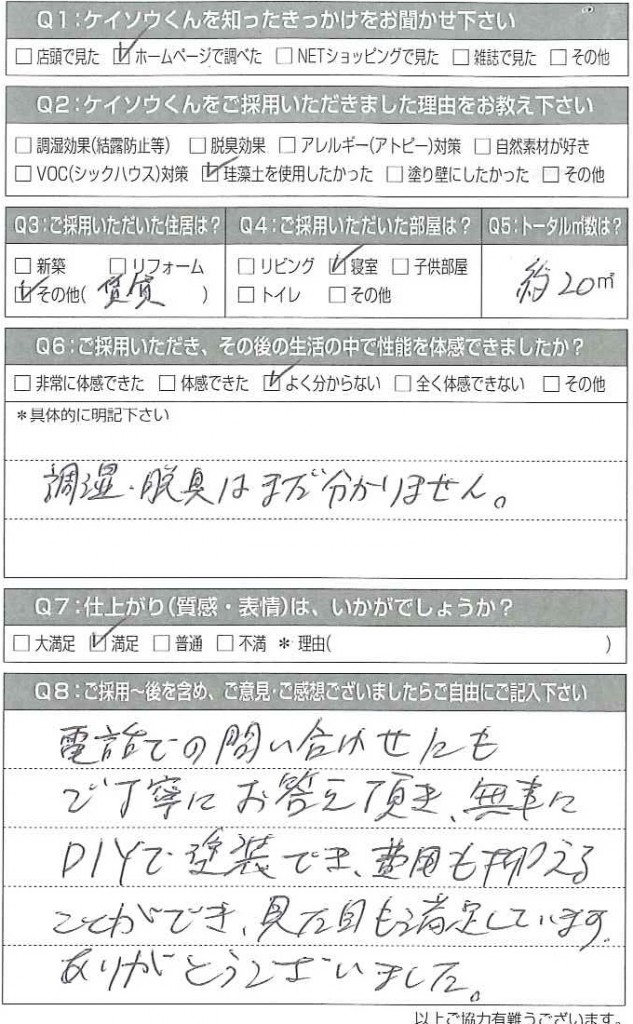 Q1:ケイソウくんを知ったきっかけをお聞かせ下さい
□店頭で見た ☑ホームページで調べた □NETショッピングで見た □雑誌で見た □その他
Q2:ケイソウくんをご採用いただきました理由をお教え下さい
□調湿効果(結露防止等) □脱臭効果 □アレルギー(アトピー)対策 □自然素材が好き
□VOC(シックハウス)対策 ☑珪藻土を使用したかった □塗り壁にしたかった □その他
Q3:ご採用いただいた住居は? Q4:ご採用いただいた部屋は? Q5:トータル㎡数は?
□新築 □リフォーム □リビング ☑寝室 □子供部屋 約20㎡
☑その他(賃貸) □トイレ □その他
Q6:ご採用いただき、その後の生活の中で性能を体感できましたか?
□非常に体感できた □体感できた ☑よく分からない □全く体感できない □その他
*具体的に明記下さい
調湿・脱臭はまだ分かりません。
Q7:仕上がり(質感・表情)は、いかがでしょうか?
□大満足 ☑満足 □普通 □不満 *理由( )
Q8:ご採用〜後を含め、ご意見・ご感想ございましたらご自由にご記入下さい
電話での問い合わせにも
ご丁寧にお答え頂き、無事に
DIYで塗装でき、費用も抑える
ことができ、見た目も満足しています。
ありがとうございました。
以上ご協力有難うございます。